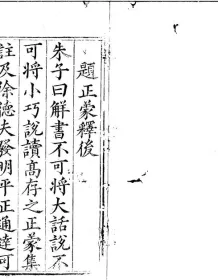 題正蒙釋後
朱子曰解書不可將大話說不
可將小巧說讀高存之正蒙集
註及徐德夫發明平正通達可